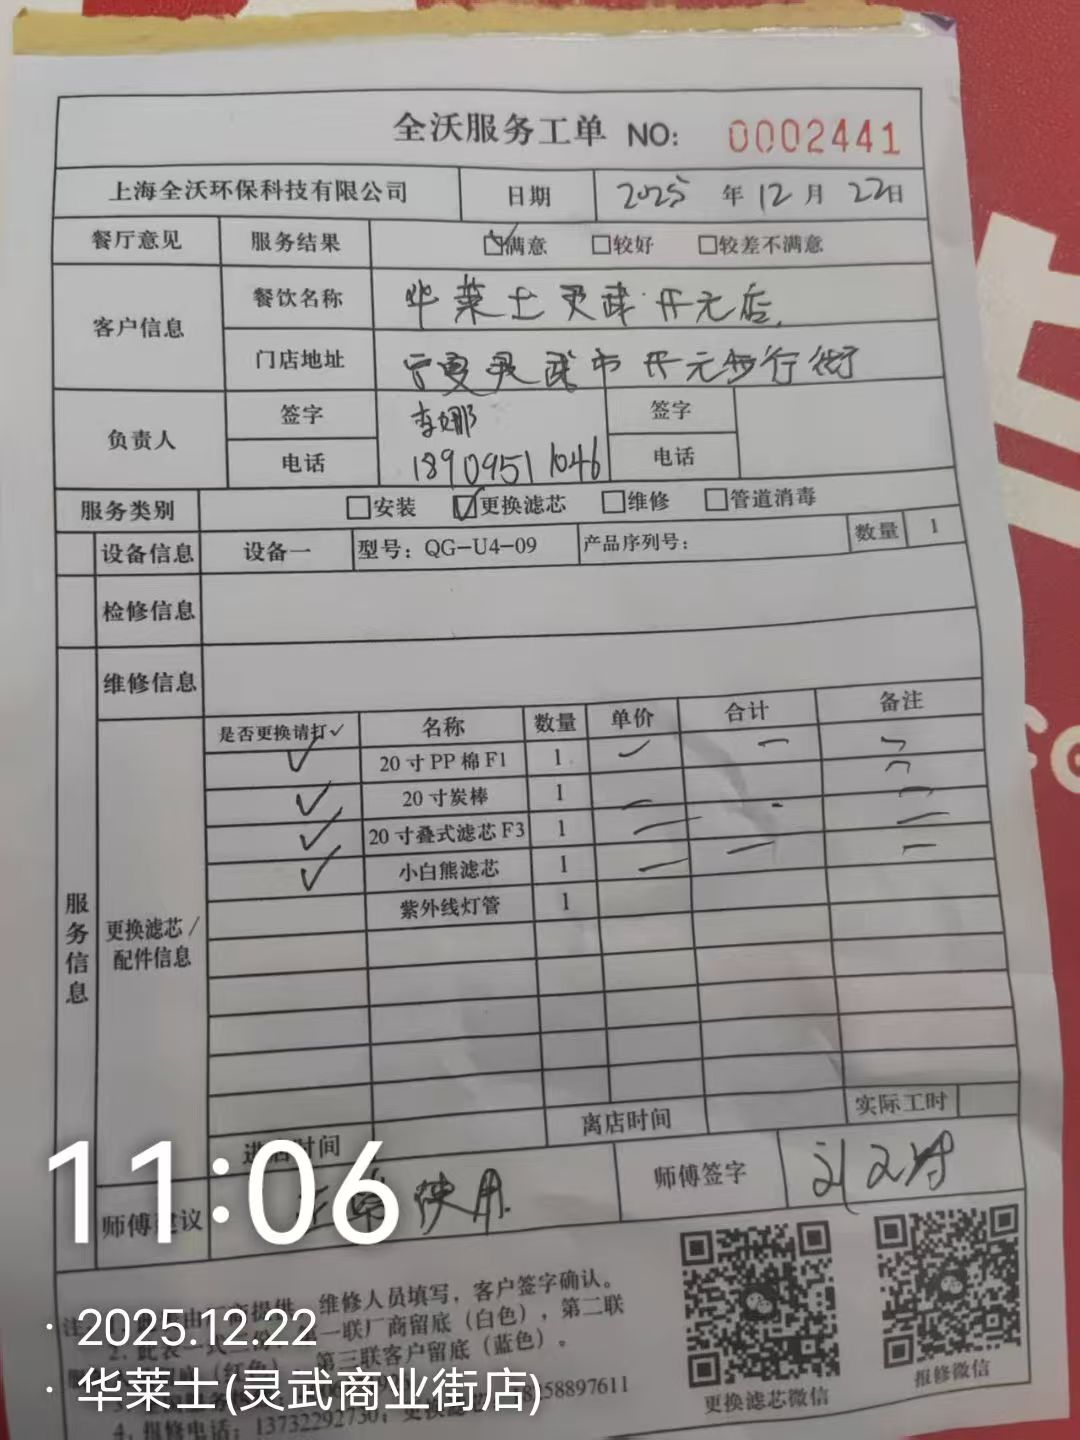 全沃服务工单 NO: 0002441
上海全沃环保科技有限公司 日期 2025 年 12 月 22日
餐厅意见 服务结果 满意 较好 较差不满意
客户信息 餐饮名称 华莱士灵武开元店
门店地址 宁夏灵武市开元步行街
负责人 签字 李娜 签字
电话 18909511046 电话
服务类别 安装 更换滤芯 维修 管道消毒
设备信息 设备一 型号: QG-U4-09 产品序列号: 数量 1
检修信息
维修信息
服务信息
更换滤芯/
配件信息
是否更换请打✓ 名称 数量 单价 合计 备注
✓ 20寸PP棉F1 1
✓ 20寸炭棒 1
✓ 20寸叠式滤芯F3 1
✓ 小白熊滤芯 1
紫外线灯管 1
进店时间 离店时间 实际工时
师傅建议 正常使用. 师傅签字
维修人员填写，客户签字确认。
一联厂商留底（白色），第二联
（红色），第三联客户留底（蓝色）。
4. 报修电话: 13732292730; 更换滤芯 58897611
更换滤芯微信 报修微信
11:06
· 2025.12.22
· 华莱士(灵武商业街店)